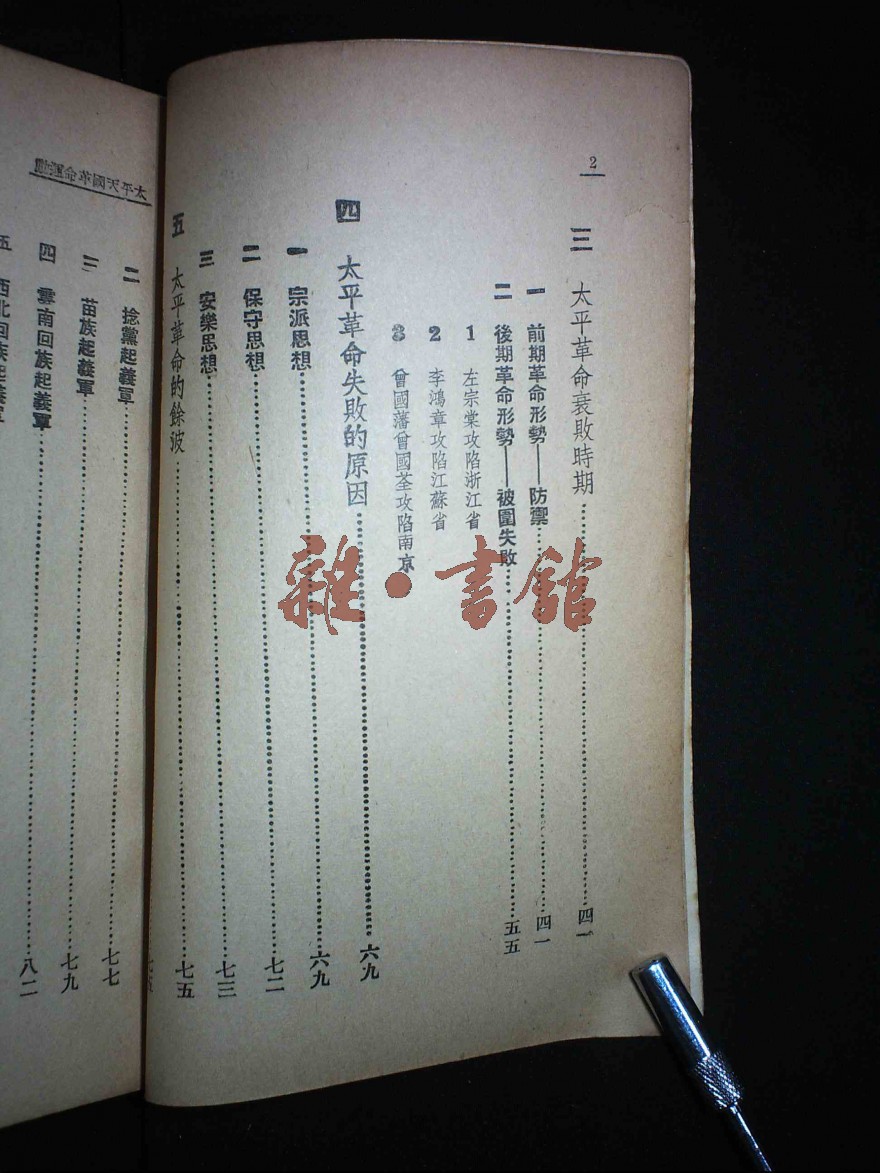 2
三 太平革命衰敗時期……四一
一 前期革命形勢——防禦……四一
二 後期革命形勢——被圍失敗……五五
1 左宗棠攻陷浙江省
2 李鴻章攻陷江蘇省
3 曾國藩曾國荃攻陷南京
四 太平革命失敗的原因……六九
一 宗派思想……六九
二 保守思想……七二
三 安樂思想……七三
五 太平革命的餘波……七五
太平天國革命運動
七五
二 捻黨起義軍……七七
三 苗族起義軍……七九
四 雲南回族起義軍……八二
五 西北回族起義軍
雜·書館